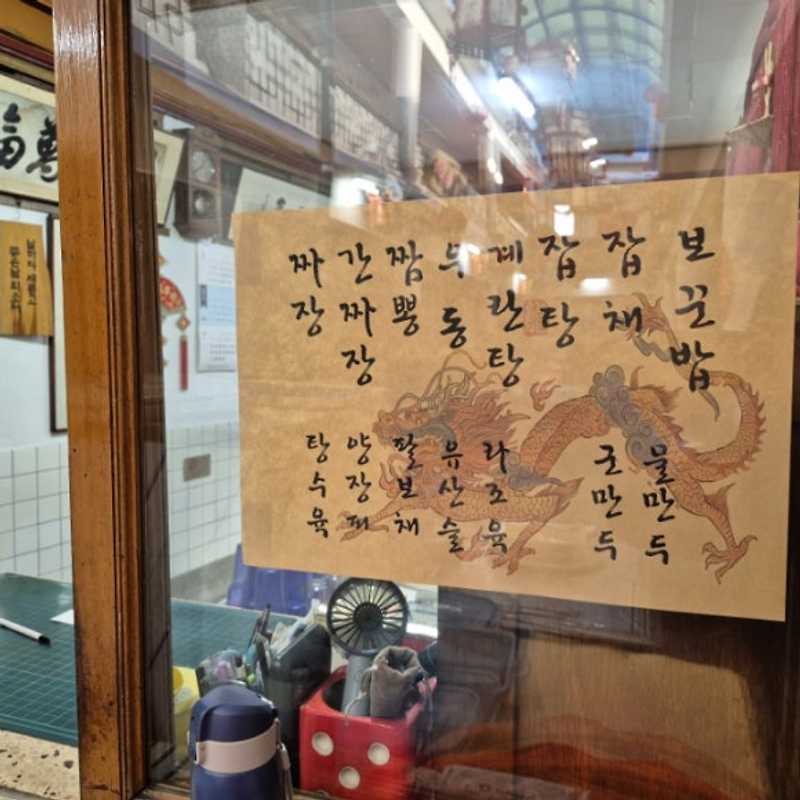 짜장
간짜장
짬뽕
우동
계란탕
잡탕
잡채
보끈밥
탕수육
양장피
팔보채
유산슬
라조육
군만두
물만두
福